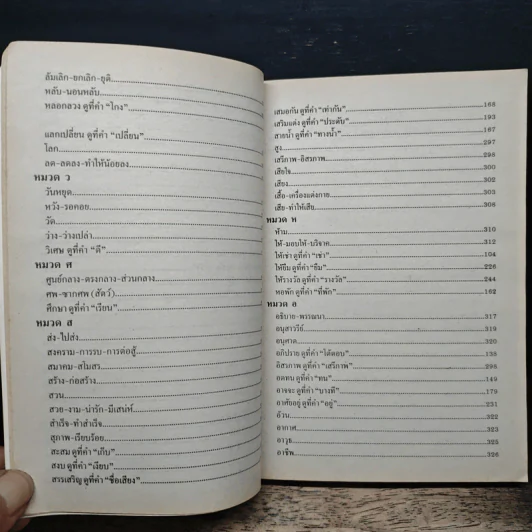 ล้มเลิก-ยกเลิก-ยุติ
หลับ-นอนหลับ
หลอกลวง ดูที่คำ "โกง"
แลกเปลี่ยน ดูที่คำ "เปลี่ยน"
โลก
ลด-ลดลง-ทำให้น้อยลง
หมวด ว
วันหยุด
หวัง-รอคอย
วัด
ว่าง-ว่างเปล่า
วิเศษ ดูที่คำ "ดี"
หมวด ศ
ศูนย์กลาง-ตรงกลาง-ส่วนกลาง
ศพ-ซากศพ (สัตว์)
ศึกษา ดูที่คำ "เรียน"
หมวด ส
ส่ง-ไปส่ง
สงคราม-การรบ-การต่อสู้
สมาคม-สโมสร
สร้าง-ก่อสร้าง
สวน
สวย-งาม-น่ารัก-มีเสน่ห์
สำเร็จ-ทำสำเร็จ
สุภาพ-เรียบร้อย
สะสม ดูที่คำ "เก็บ"
สงบ ดูที่คำ "เงียบ"
สรรเสริญ ดูที่คำ "ชื่อเสียง"
เสมอกัน ดูที่คำ "เท่ากัน" 188
เสริมแต่ง ดูที่คำ "ประดับ" 193
สายน้ำ ดูที่คำ "ทางน้ำ" 187
สูง 297
เสรีภาพ-อิสรภาพ 298
เสียใจ 300
เสียง 302
เสื้อ-เครื่องแต่งกาย 303
เสีย-ทำให้เสีย 306
หมวด ห
ห้าม 310
ให้-มอบให้-บริจาค 312
ให้เช่า ดูที่คำ "เช่า" 104
ให้ยืม ดูที่คำ "ยืม" 226
ให้รางวัล ดูที่คำ "รางวัล" 244
หอพัก ดูที่คำ "ที่พัก" 162
หมวด อ
อธิบาย-พรรณนา 317
อนุสาวรีย์ 319
อนุศาต 320
อภิปราย ดูที่คำ "โต้ตอบ" 138
อิสรภาพ ดูที่คำ "เสรีภาพ" 298
อดทน ดูที่คำ "ทน" 149
อาจจะ ดูที่คำ "บางที" 179
อาศัยอยู่ ดูที่คำ "อยู่" 231
อ้วน 322
อากาศ 323
อาวุธ 325
อาชีพ 326